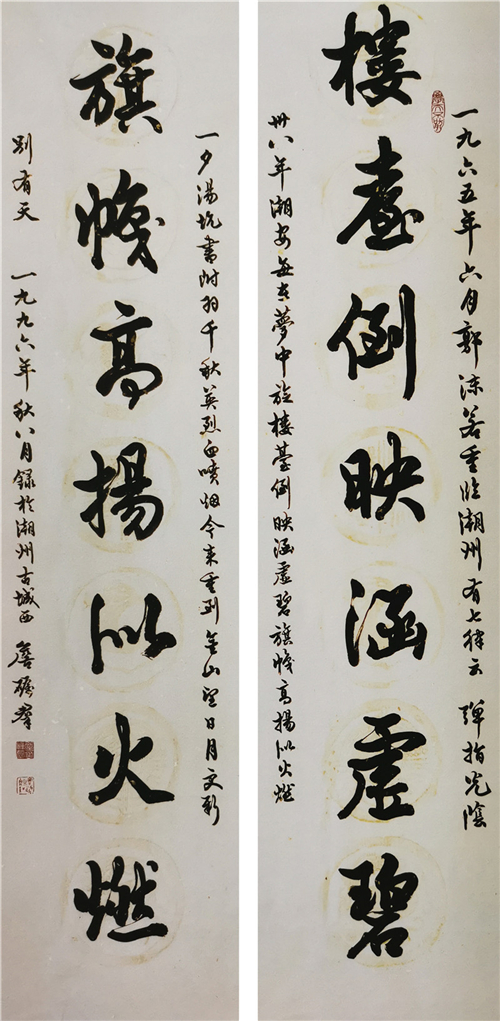 一九六五年六月郭沫若重臨潮州有七律云 彈指光陰
樓臺倒映涵虛碧
卅八年潮安每在夢中旋樓臺倒映涵虛碧旗幟高揚似火燃
一夕湯坑書附羽千秋英烈血噴烟今來重到金山望日月更新
旗幟高揚似火燃
別有天 一九九六年秋八月錄於潮州古城西